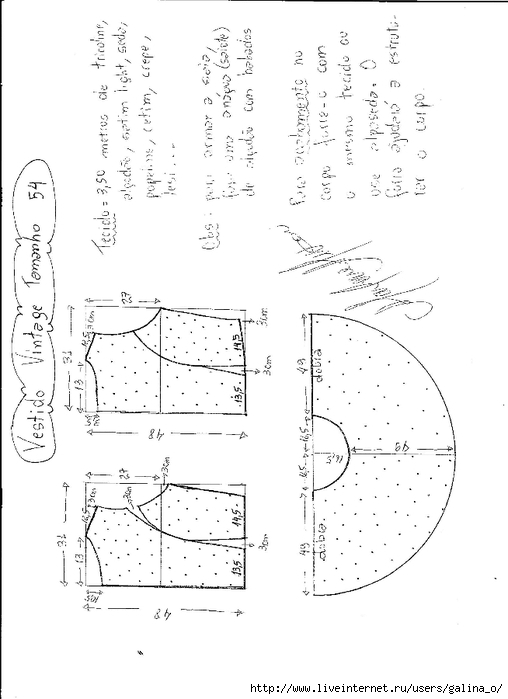 Vestido Vintage Tamanho 54
Tecido = 3,50 metros de tricoline,
algodão, cetim light, seda,
popeline, cetim, crepe,
Obs: para armar a saia,
faça uma anágua (saiote)
de algodão com babados
Para acabamento no
corpo forre-o com
o mesmo tecido ou
use
forro ajudará a estrutu-
rar o corpo.
27
3cm
31
13
48
14,5
13,5
3cm
3cm
27
3cm
3cm
31
13
48
14,5
13,5
3cm
49
dobra
49
dobra
49
http://www.liveinternet.ru/users/galina_o/